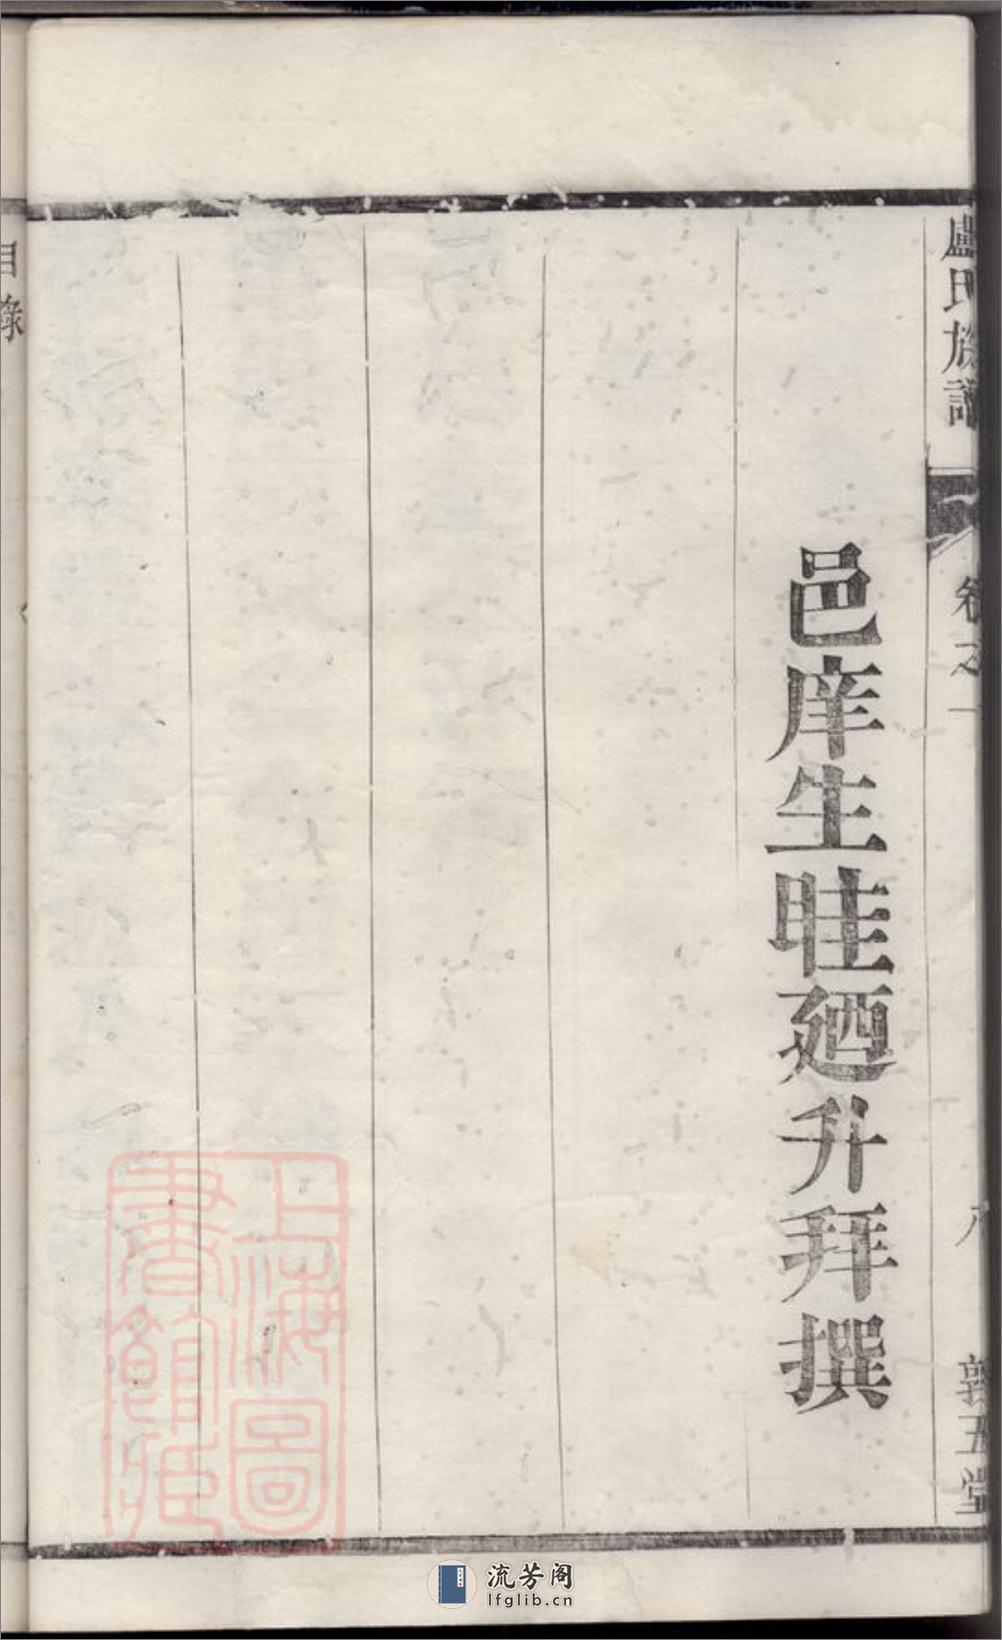 盧氏族譜
卷之一
八
敦五堂
邑庠生眭廼升拜撰
上海圖
書館藏
目錄
流芳阁
lfglib.cn